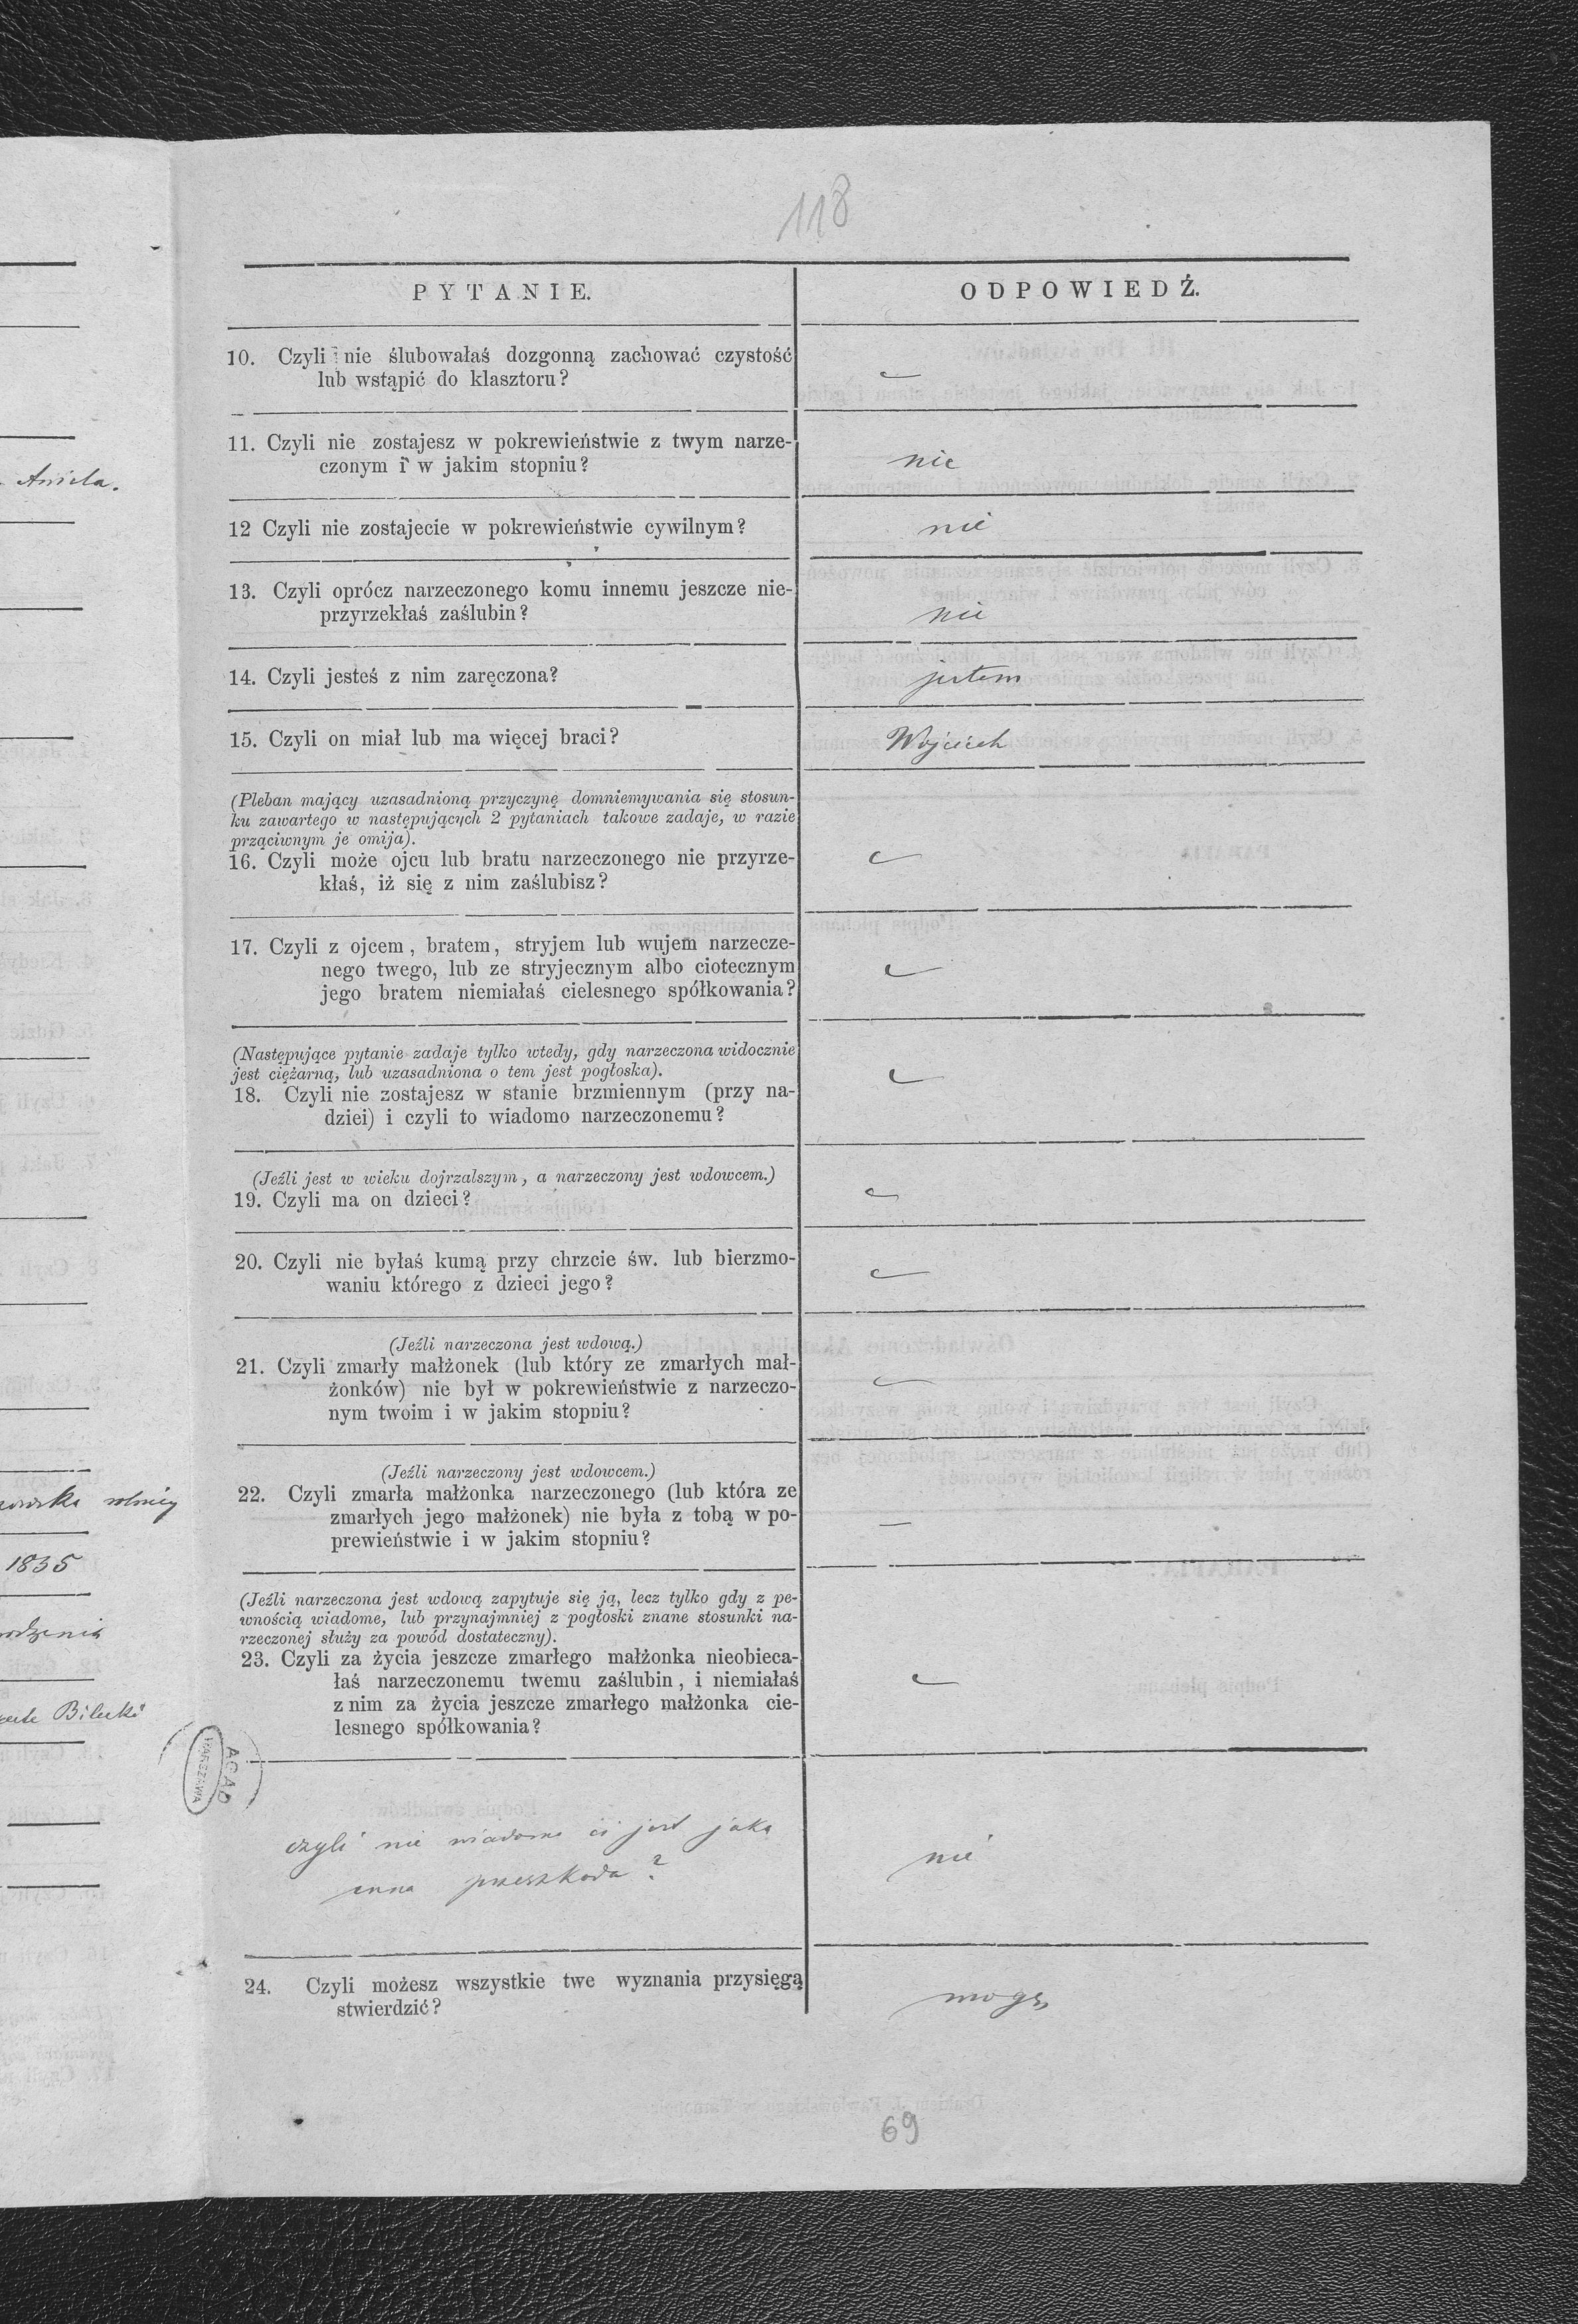 118
PYTANIE.
ODPOWIEDŹ.
10. Czyli nie ślubowałaś dozgonną zachować czystość
lub wstąpić do klasztoru?
11. Czyli nie zostajesz w pokrewieństwie z twym narze-
czonym i w jakim stopniu?
nie
12 Czyli nie zostajecie w pokrewieństwie cywilnym?
nie
13. Czyli oprócz narzeczonego komu innemu jeszcze nie-
przyrzekłaś zaślubin?
nie
14. Czyli jesteś z nim zaręczona?
jestem
15. Czyli on miał lub ma więcej braci?
Wojciech
(Pleban mający uzasadnioną przyczynę domniemywania się stosun-
ku zawartego w następujących 2 pytaniach takowe zadaje, w razie
prząciwnym je omija).
16. Czyli może ojcu lub bratu narzeczonego nie przyrze-
kłaś, iż się z nim zaślubisz?
17. Czyli z ojcem, bratem, stryjem lub wujem narzecze-
nego twego, lub ze stryjecznym albo ciotecznym
jego bratem niemiałaś cielesnego spółkowania?
(Następujące pytanie zadaje tylko wtedy, gdy narzeczona widocznie
jest ciężarną, lub uzasadniona o tem jest pogłoska).
18. Czyli nie zostajesz w stanie brzmiennym (przy na-
dziei) i czyli to wiadomo narzeczonemu?
(Jeźli jest w wieku dojrzalszym, a narzeczony jest wdowcem.)
19. Czyli ma on dzieci?
20. Czyli nie byłaś kumą przy chrzcie św. lub bierzmo-
waniu którego z dzieci jego?
(Jeźli narzeczona jest wdową.)
21. Czyli zmarły małżonek (lub który ze zmarłych mał-
żonków) nie był w pokrewieństwie z narzeczo-
nym twoim i w jakim stopniu?
(Jeźli narzeczony jest wdowcem.)
22. Czyli zmarła małżonka narzeczonego (lub która ze
zmarłych jego małżonek) nie była z tobą w po-
prewieństwie i w jakim stopniu?
—
(Jeźli narzeczona jest wdową zapytuje się ją, lecz tylko gdy z pe-
wnością wiadome, lub przynajmniej z pogłoski znane stosunki na-
rzeczonej służy za powód dostateczny).
23. Czyli za życia jeszcze zmarłego małżonka nieobieca-
łaś narzeczonemu twemu zaślubin, i niemiałaś
z nim za życia jeszcze zmarłego małżonka cie-
lesnego spółkowania?
czyli nie wiadomo ci jest jaka
inna przeszkoda?
nie
24. Czyli możesz wszystkie twe wyznania przysięgą
stwierdzić?
mogę
69
Aniela.
1835
Bilecki
AGAD
WARSZAWA